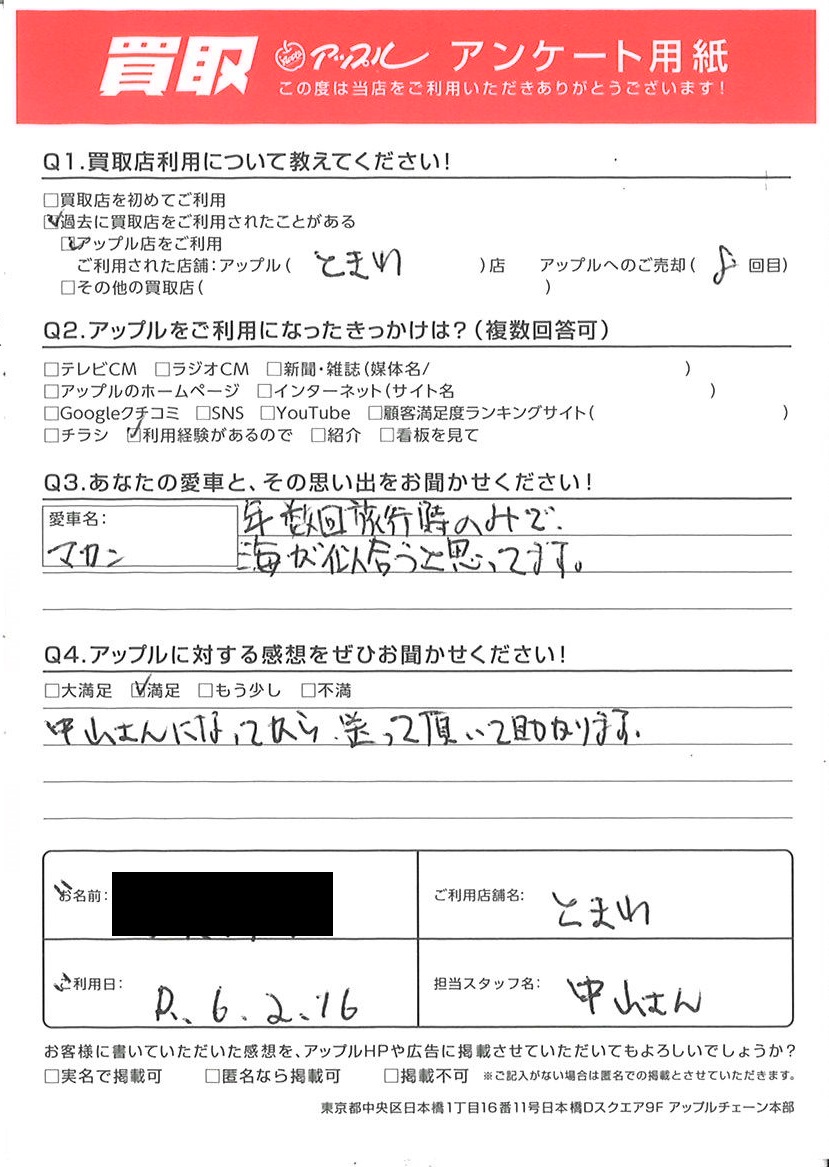 買取 Apple アップル アンケート用紙
この度は当店をご利用いただきありがとうございます!
Q1.買取店利用について教えてください!
□買取店を初めてご利用
☑過去に買取店をご利用されたことがある
☑アップル店をご利用
ご利用された店舗:アップル( とまれ )店 アップルへのご売却( 8 回目)
□その他の買取店( )
Q2.アップルをご利用になったきっかけは?(複数回答可)
□テレビCM □ラジオCM □新聞・雑誌(媒体名/ )
□アップルのホームページ □インターネット(サイト名 )
□Googleクチコミ □SNS □YouTube □顧客満足度ランキングサイト( )
□チラシ ☑利用経験があるので □紹介 □看板を見て
Q3.あなたの愛車と、その思い出をお聞かせください!
愛車名: 年数回旅行時のみで、
マカン 海が似合うと思ってます。
Q4.アップルに対する感想をぜひお聞かせください!
□大満足 ☑満足 □もう少し □不満
中山さんになってから、 って頂いて助かります。
お名前: ご利用店舗名: とまれ
ご利用日: R.6.2.16 担当スタッフ名: 中山さん
お客様に書いていただいた感想を、アップルHPや広告に掲載させていただいてもよろしいでしょうか?
□実名で掲載可 □匿名なら掲載可 □掲載不可 ※ご記入がない場合は匿名での掲載とさせていただきます。
東京都中央区日本橋1丁目16番11号日本橋Dスクエア9F アップルチェーン本部